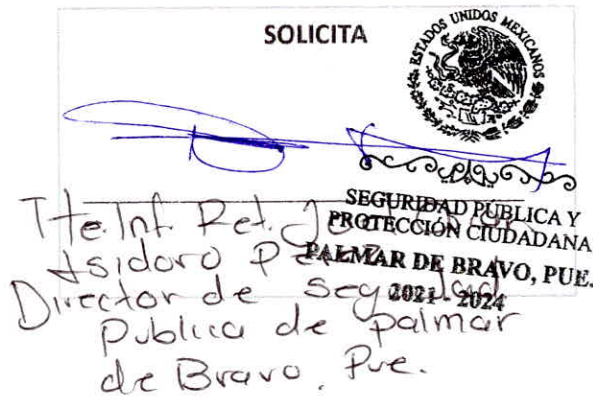 SOLICITA
ESTADOS UNIDOS MEXICANOS
SEGURIDAD PÚBLICA Y
PROTECCIÓN CIUDADANA
PALMAR DE BRAVO, PUE.
2021 - 2024
Tte. Inf. Ret.
Isidoro
Director de Seguridad
Publica de palmar
de Bravo, Pue.